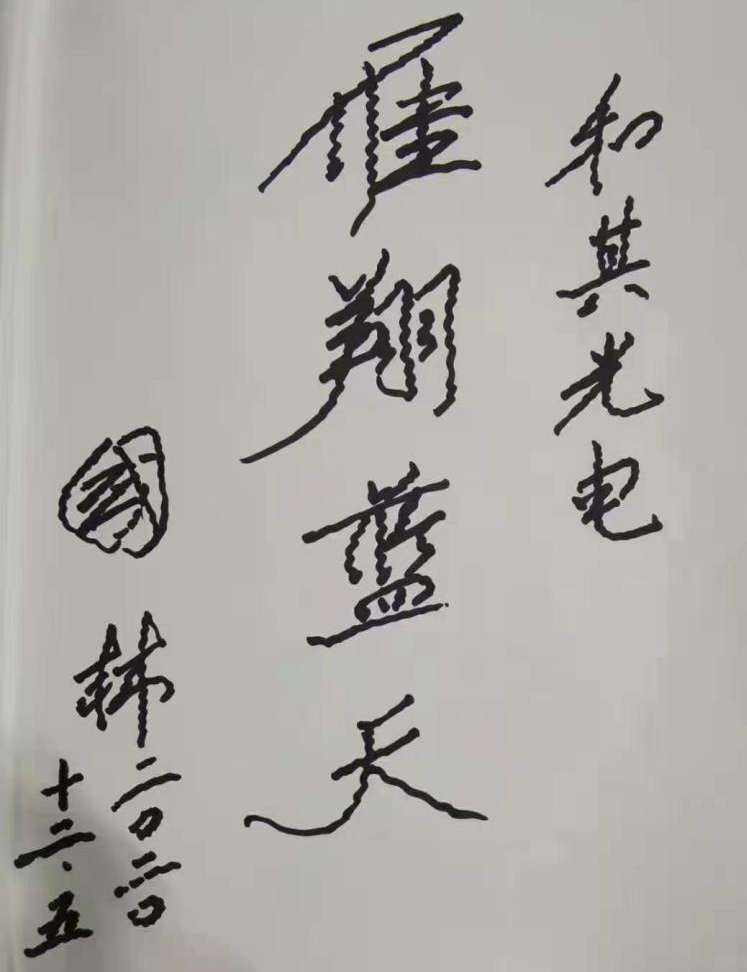 和其光电
雁翔蓝天
國林二〇二〇
十二.五